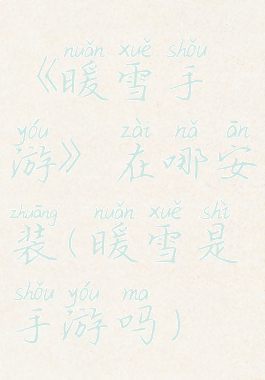 nuǎn xuě shǒu
《暖雪手
yóu zài nǎ ān
游》 在哪安
zhuāng nuǎn xuě shì
装(暖雪是
shǒu yóu ma
手游吗)